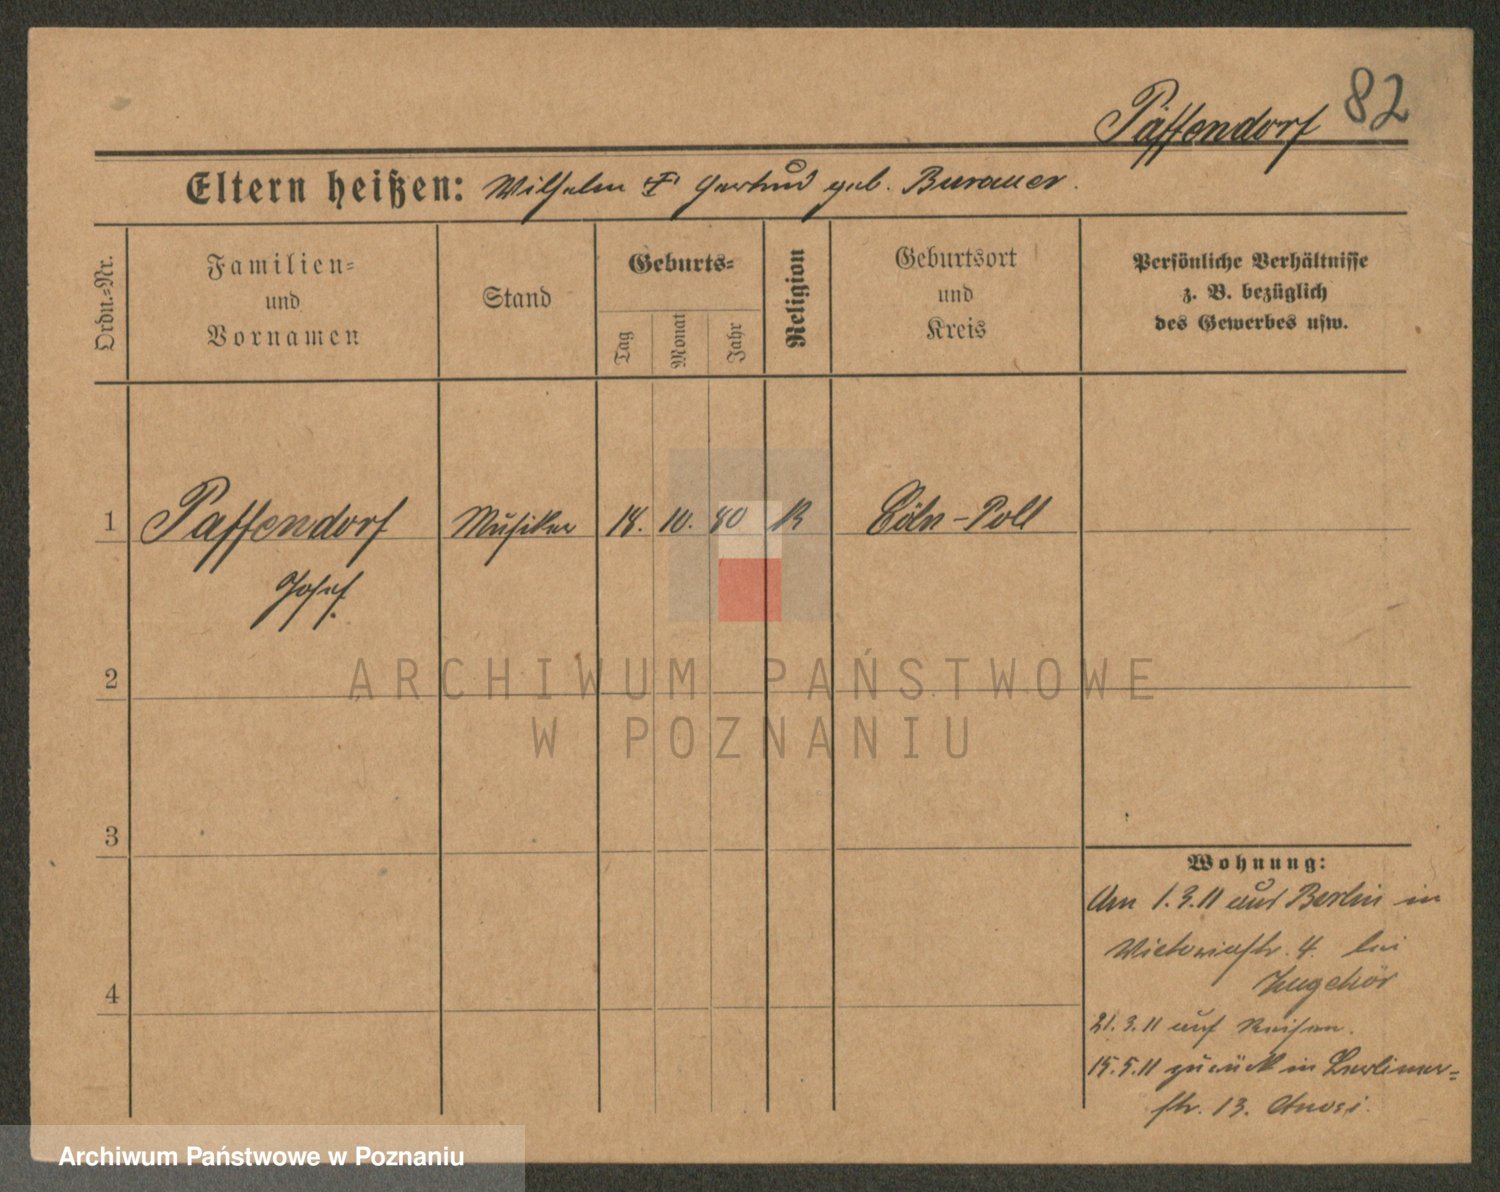 Paffendorf 82
Eltern heißen: Wilhelm Gertrud geb. Burauer.
Ordn.-Nr.
Familien-
und
Vornamen
Stand
Geburts-
Tag
Monat
Jahr
Religion
Geburtsort
und
Kreis
Persönliche Verhältnisse
z. B. bezüglich
des Gewerbes usw.
1 Paffendorf Musiker 18. 10. 80 K Cöln-Poll
Josef.
2
3
4
Wohnung:
Am 1.3.11 aus Berlin in
Victoriastr. 4. bei
21.3.11 auf Reisen.
15.5.11 zurück in Berliner=
str. 13.
ARCHIWUM PAŃSTWOWE
W POZNANIU
Archiwum Państwowe w Poznaniu